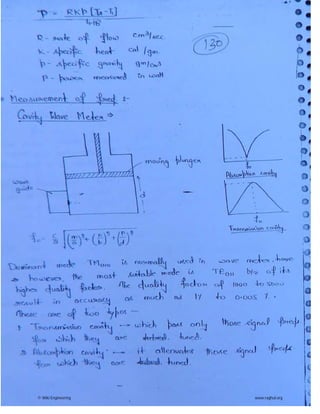 P = RKρ [T₂-T₁]
4.18
R - rate of flow cm³/sec
K - specific heat cal/gm
p - specific gravity gm/cm³
P - power measured in watt
130
Measurement of freq :-
Cavity Wave Meter ⇒
moving plunger
wave guide
d
f₀
Absorption cavity
f₀
Transmission cavity
Dominant mode is normally used in wave meter
however, the most suitable mode is TE₀₁₁ b/c of its
higher quality factor. The quality factor of 1000 to
result in accuracy as much as 1% to 0.005 %.
These are of two types -
Transmission cavity → which pass only those signal freq
for which they are tuned.
Absorption cavity → it attenuates those signal freq
for which they are tuned.
© Wiki Engineering
www.raghul.org